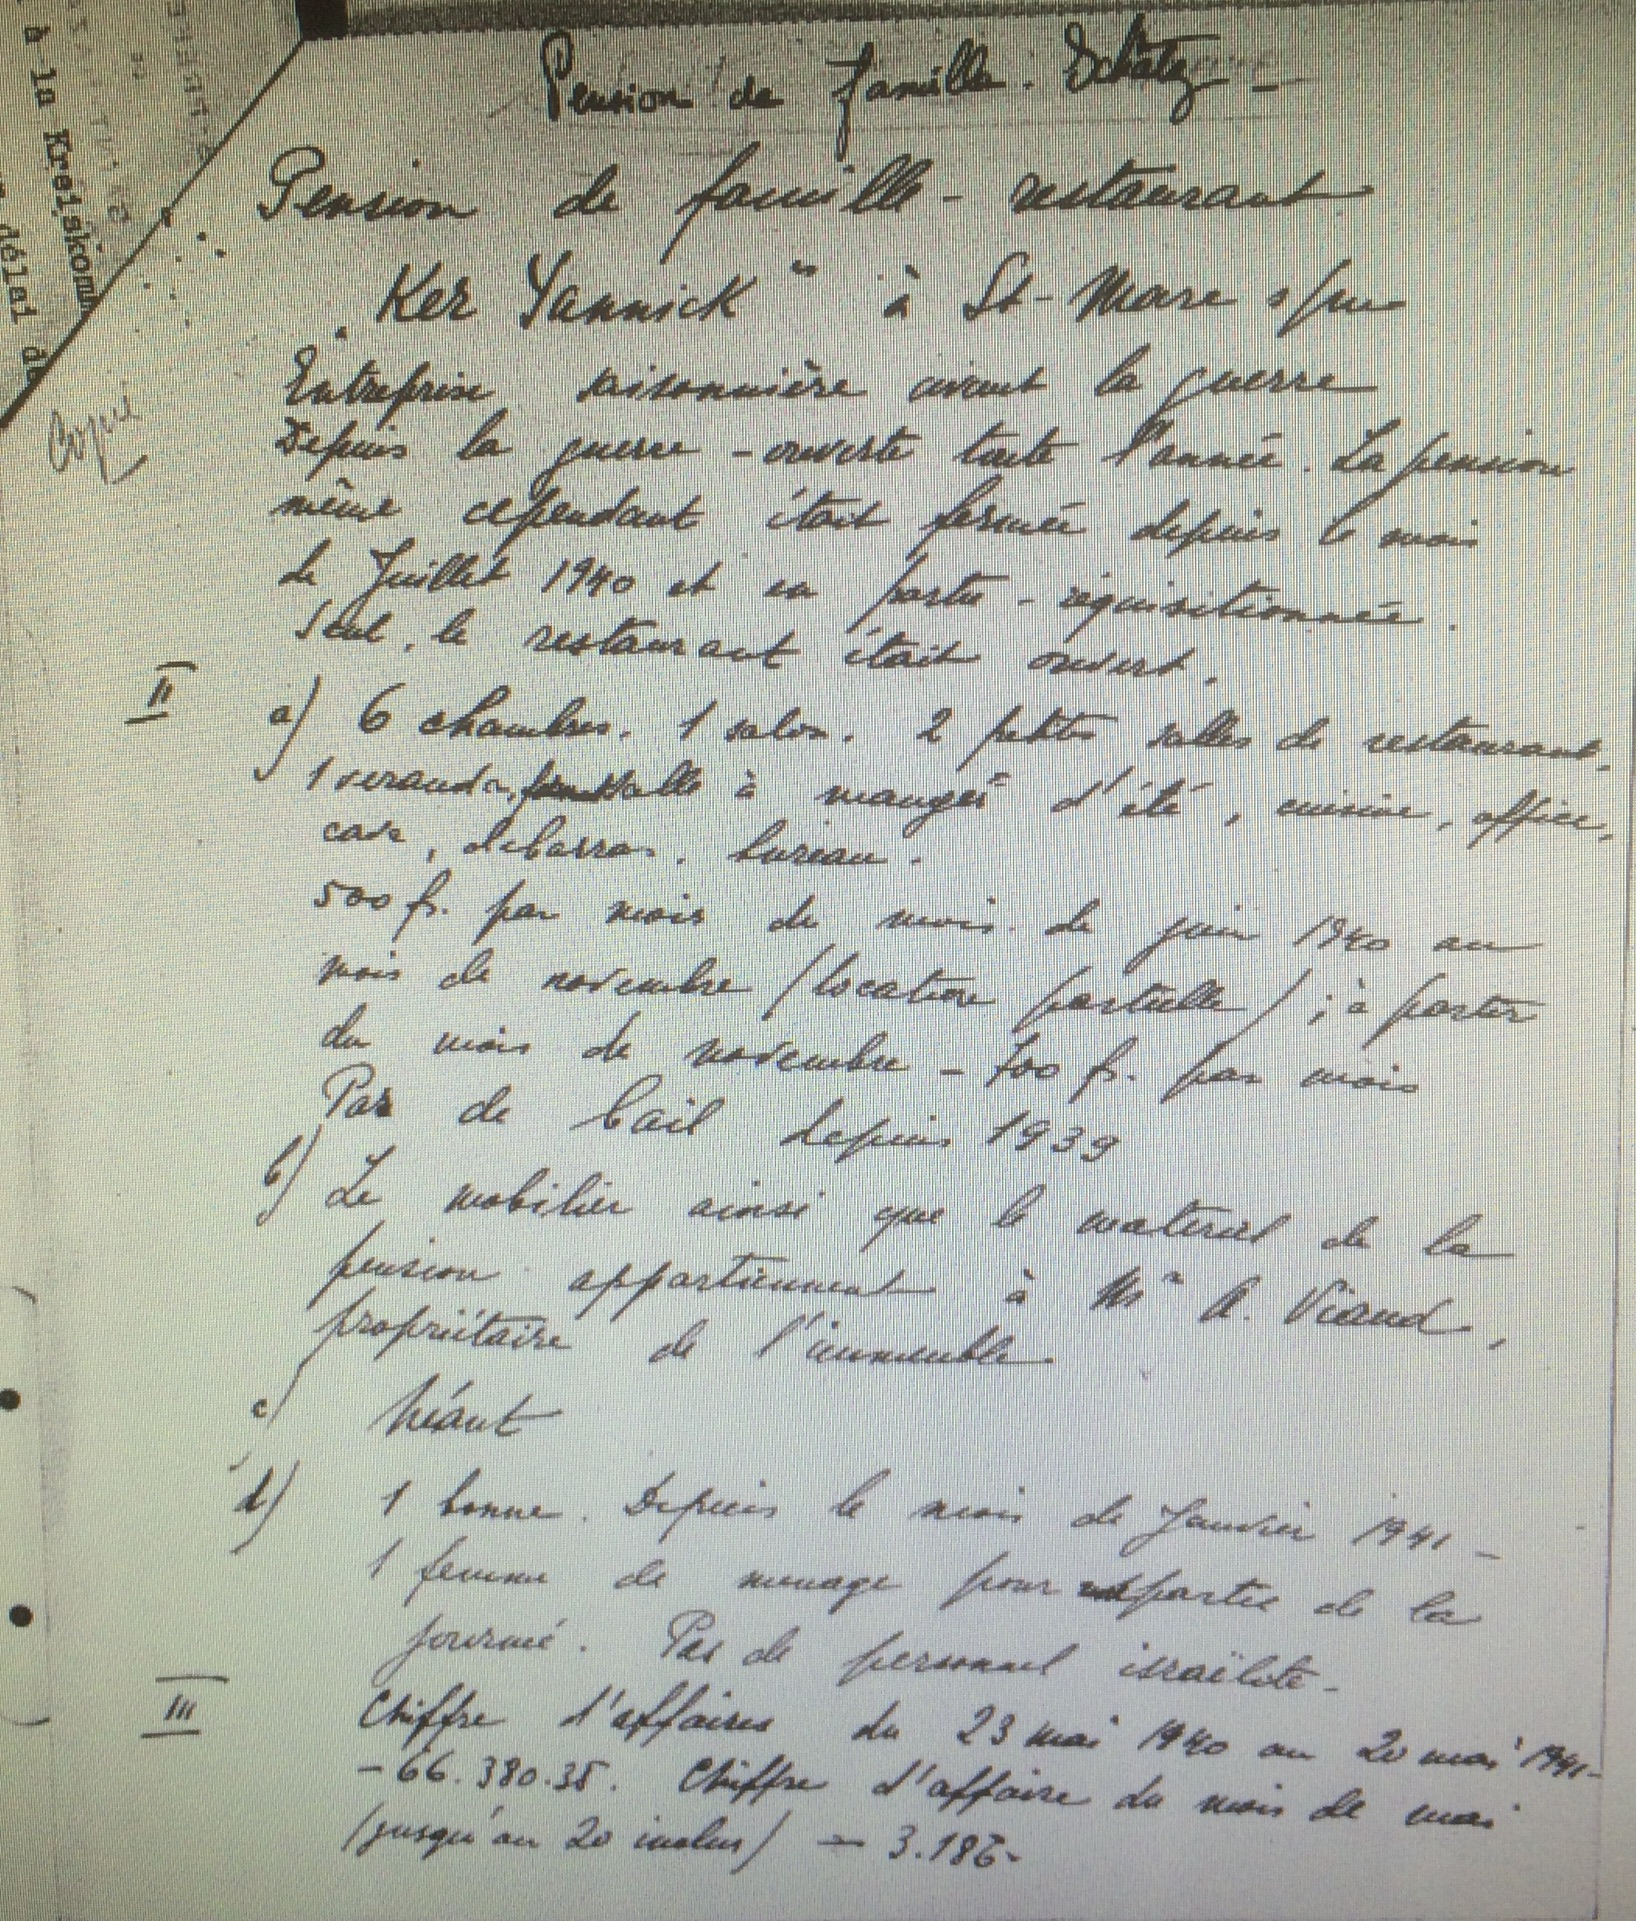 à la Kreiskom
délai de
Copie
Pension de famille.
Pension de famille - restaurant
"Ker Yannick" à St-Marc s/mer
Entreprise saisonnière avant la guerre
Depuis la guerre - ouverte toute l'année. La pension
même cependant était fermée depuis le mois
de Juillet 1940 et en partie - réquisitionnée.
Seul, le restaurant était ouvert.
II
a) 6 chambres. 1 salon. 2 petites salles de restaurant.
1 veranda, salle à manger d'été, cuisine, office,
cave, debarras. bureau.
500 fr. par mois du mois de juin 1940 au
mois de novembre (location partielle); à partir
du mois de novembre - 700 fr. par mois
Pas de bail depuis 1939
b) Le mobilier ainsi que le materiel de la
pension appartiennent à Mr A. Viaud,
propriétaire de l'immeuble.
c) Néant
d) 1 bonne. Depuis le mois de Janvier 1941 -
1 femme de menage pour partie de la
journé. Pas de personnel israëlite -
III
Chiffre d'affaires du 23 mai 1940 au 20 mai 1941-
- 66.380.35. Chiffre d'affaire du mois de mai
(jusqu'au 20 inclus) - 3.186-